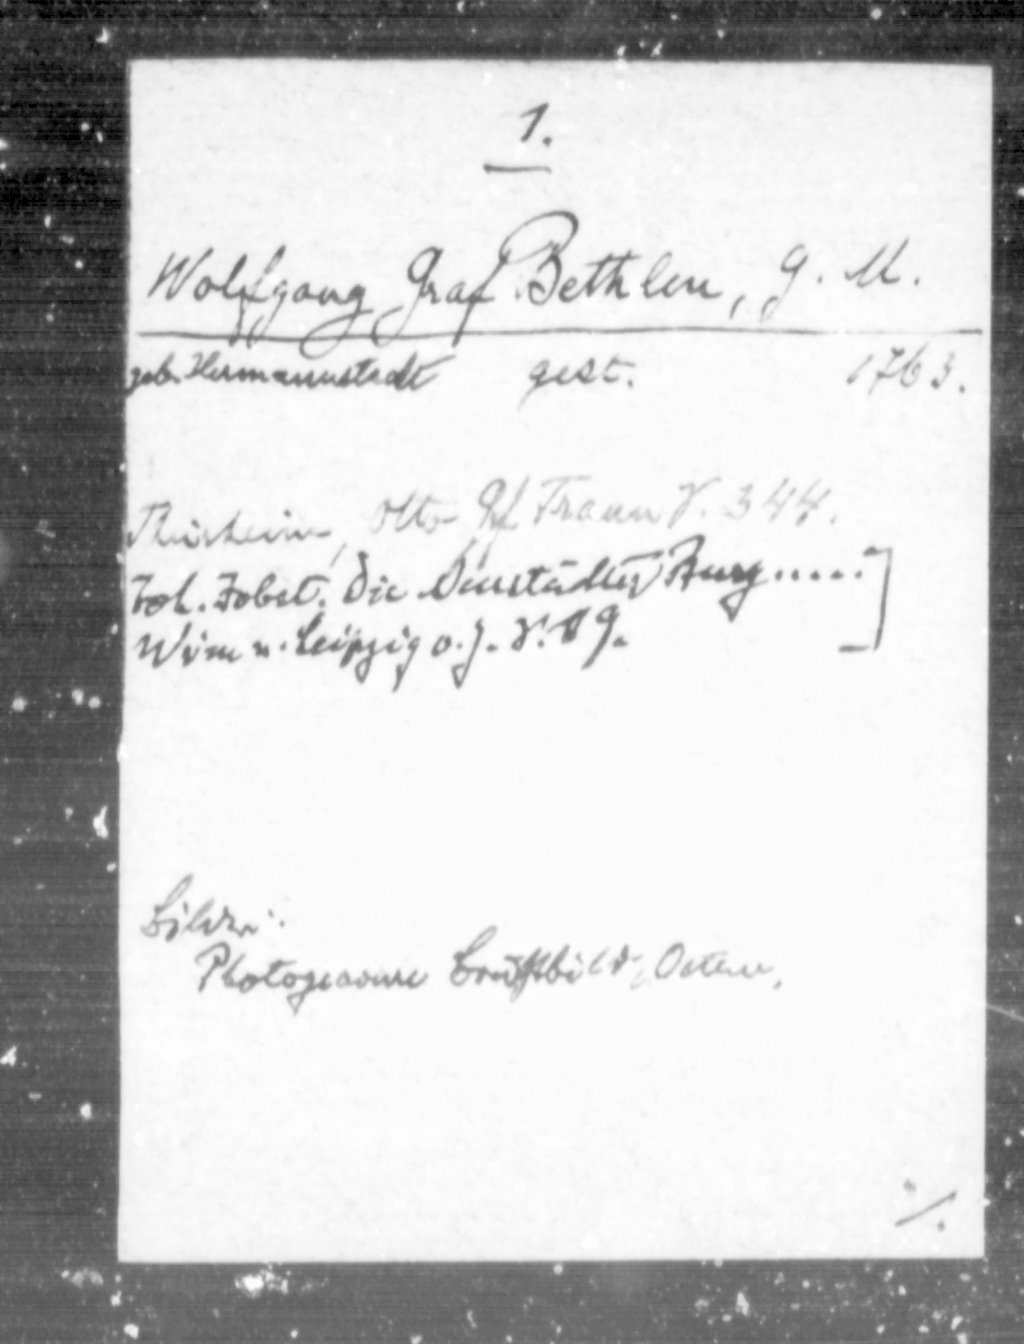 1.
Wolfgang Graf Bethlen, G. M.
geb. Hermannstadt gest. 1763.
Thürheim, Otto Gf Traun S. 344.
Joh. Jobst. Die Neustädter Burg.....
Wien u. Leipzig o. J. S. 89.
Bilder:
Photogravure Brustbild,
./.